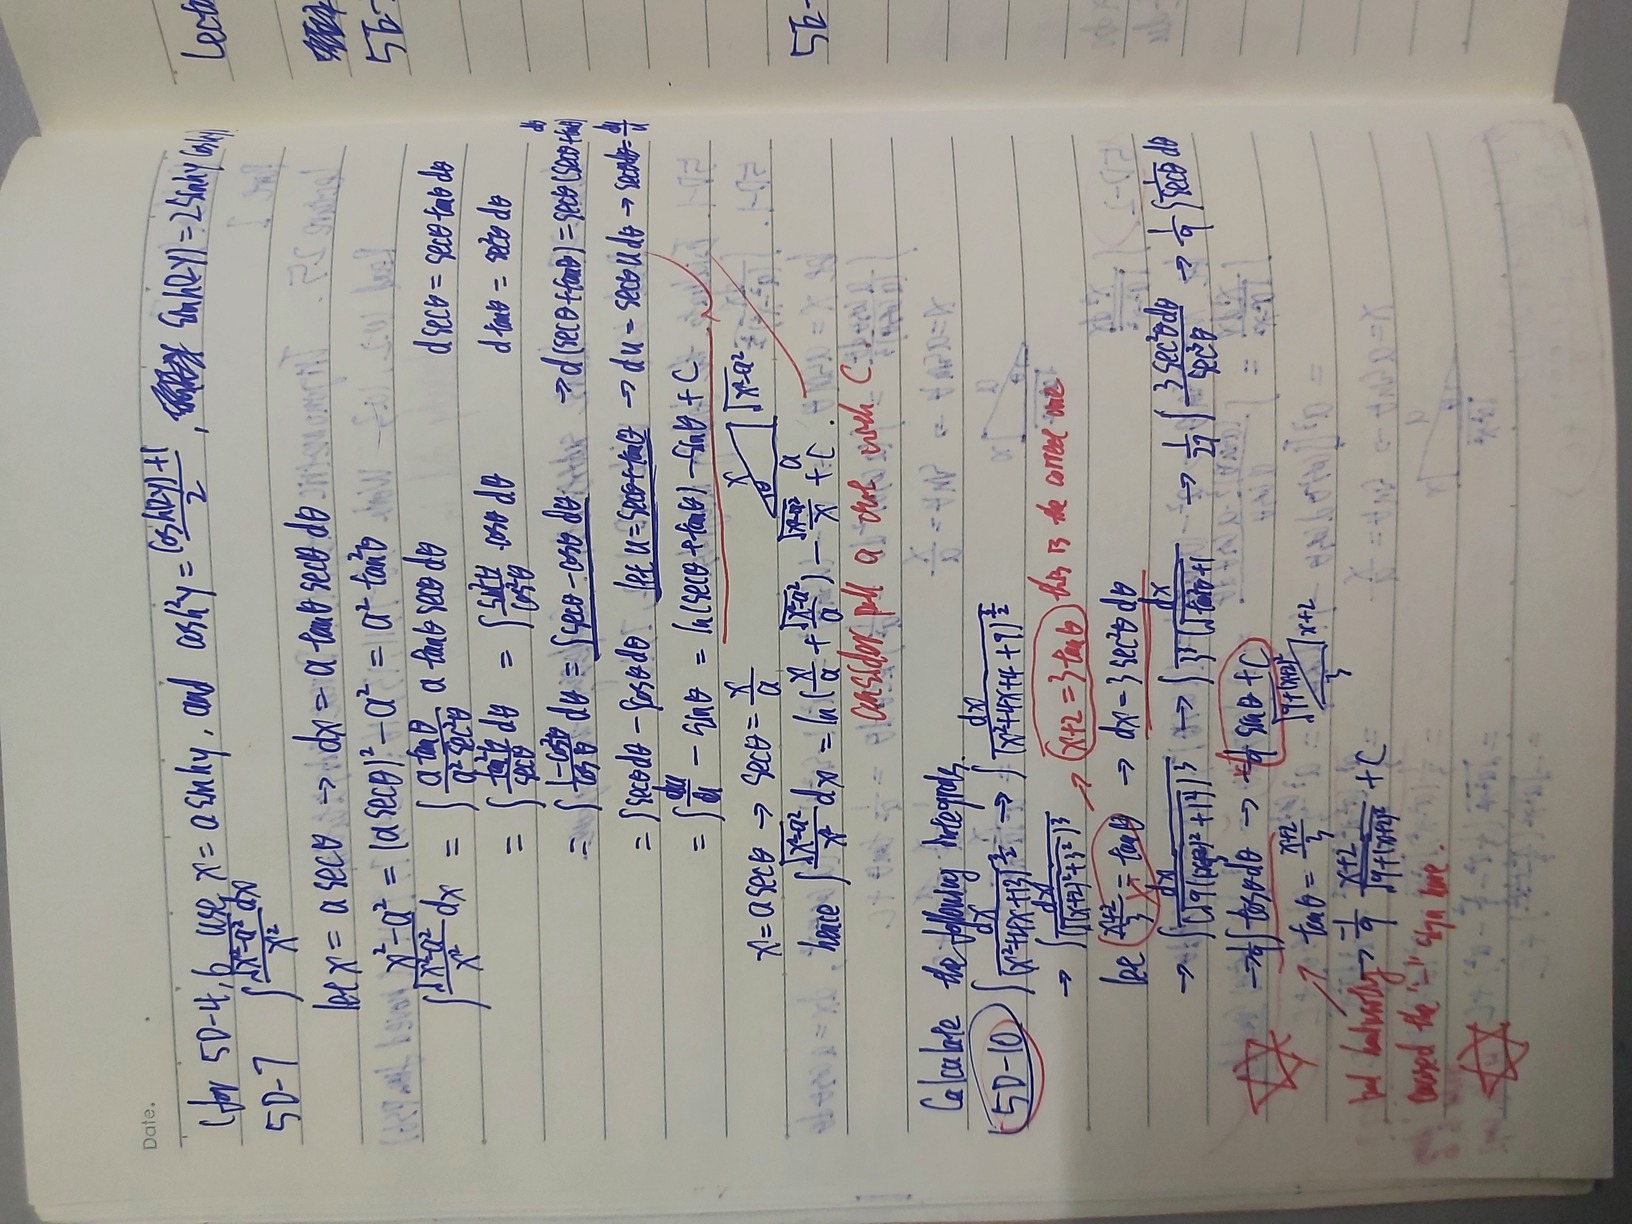 Date.
(for 5D-4,6 use x = a sinh y, and cosh²y = (cosh(2y)+1)/2, sinh(2y) = 2 sinh y cosh y)
5D-7 ∫ √(x²-a²) dx / x²
let x = a secθ → dx = a tanθ secθ dθ
x²-a² = (a secθ)² - a² = a² tan²θ
∫ √(x²-a²)/x² dx = ∫ (a tanθ)/(a² sec²θ) a tanθ secθ dθ d secθ = secθ tanθ dθ
= ∫ tan²θ/secθ dθ = ∫ sin²θ/cos²θ · cosθ dθ d tanθ = sec²θ dθ
= ∫ (1-cos²θ)/cosθ dθ = ∫ secθ - cosθ dθ → d(secθ+tanθ) = secθ(secθ+tanθ) dθ
= ∫ secθ dθ - ∫cosθ dθ let u = secθ+tanθ → du = secθ u dθ → secθ dθ = du/u
= ∫ du/u - sinθ = ln(secθ+tanθ) - sinθ + C
x = a secθ → secθ = x/a x √(x²-a²) θ a
hence ∫ √(x²-a²)/x² dx = ln(x/a + √(x²-a²)/a) - √(x²-a²)/x + C.
consider pull a out with C
Calculate the following integrals.
5D-10 ∫ dx/(x²+4x+13)^(3/2) → ∫ dx/(x²+4x+4+9)^(3/2)
→ ∫ dx/(√((x+2)²+3²))³ → x+2 = 3 tanθ this is the correct one
let (x+2)/3 = tanθ → dx = 3 sec²θ dθ
→ ∫ dx/(√9((x+2)²/3 + 1))³ → ∫ dx/3³(√tan²θ+1 → 1/27 ∫ 3 sec²θ dθ/sec³θ → 1/9 ∫ 1/secθ dθ
→ 1/9 ∫ cosθ dθ → -1/9 sinθ + C
tanθ = (x+2)/3 √(9+(x+2)²) x+2 3
bad handwriting → -1/9 (x+2)/√(9+(x+2)²) + C
caused the "-" sign here.